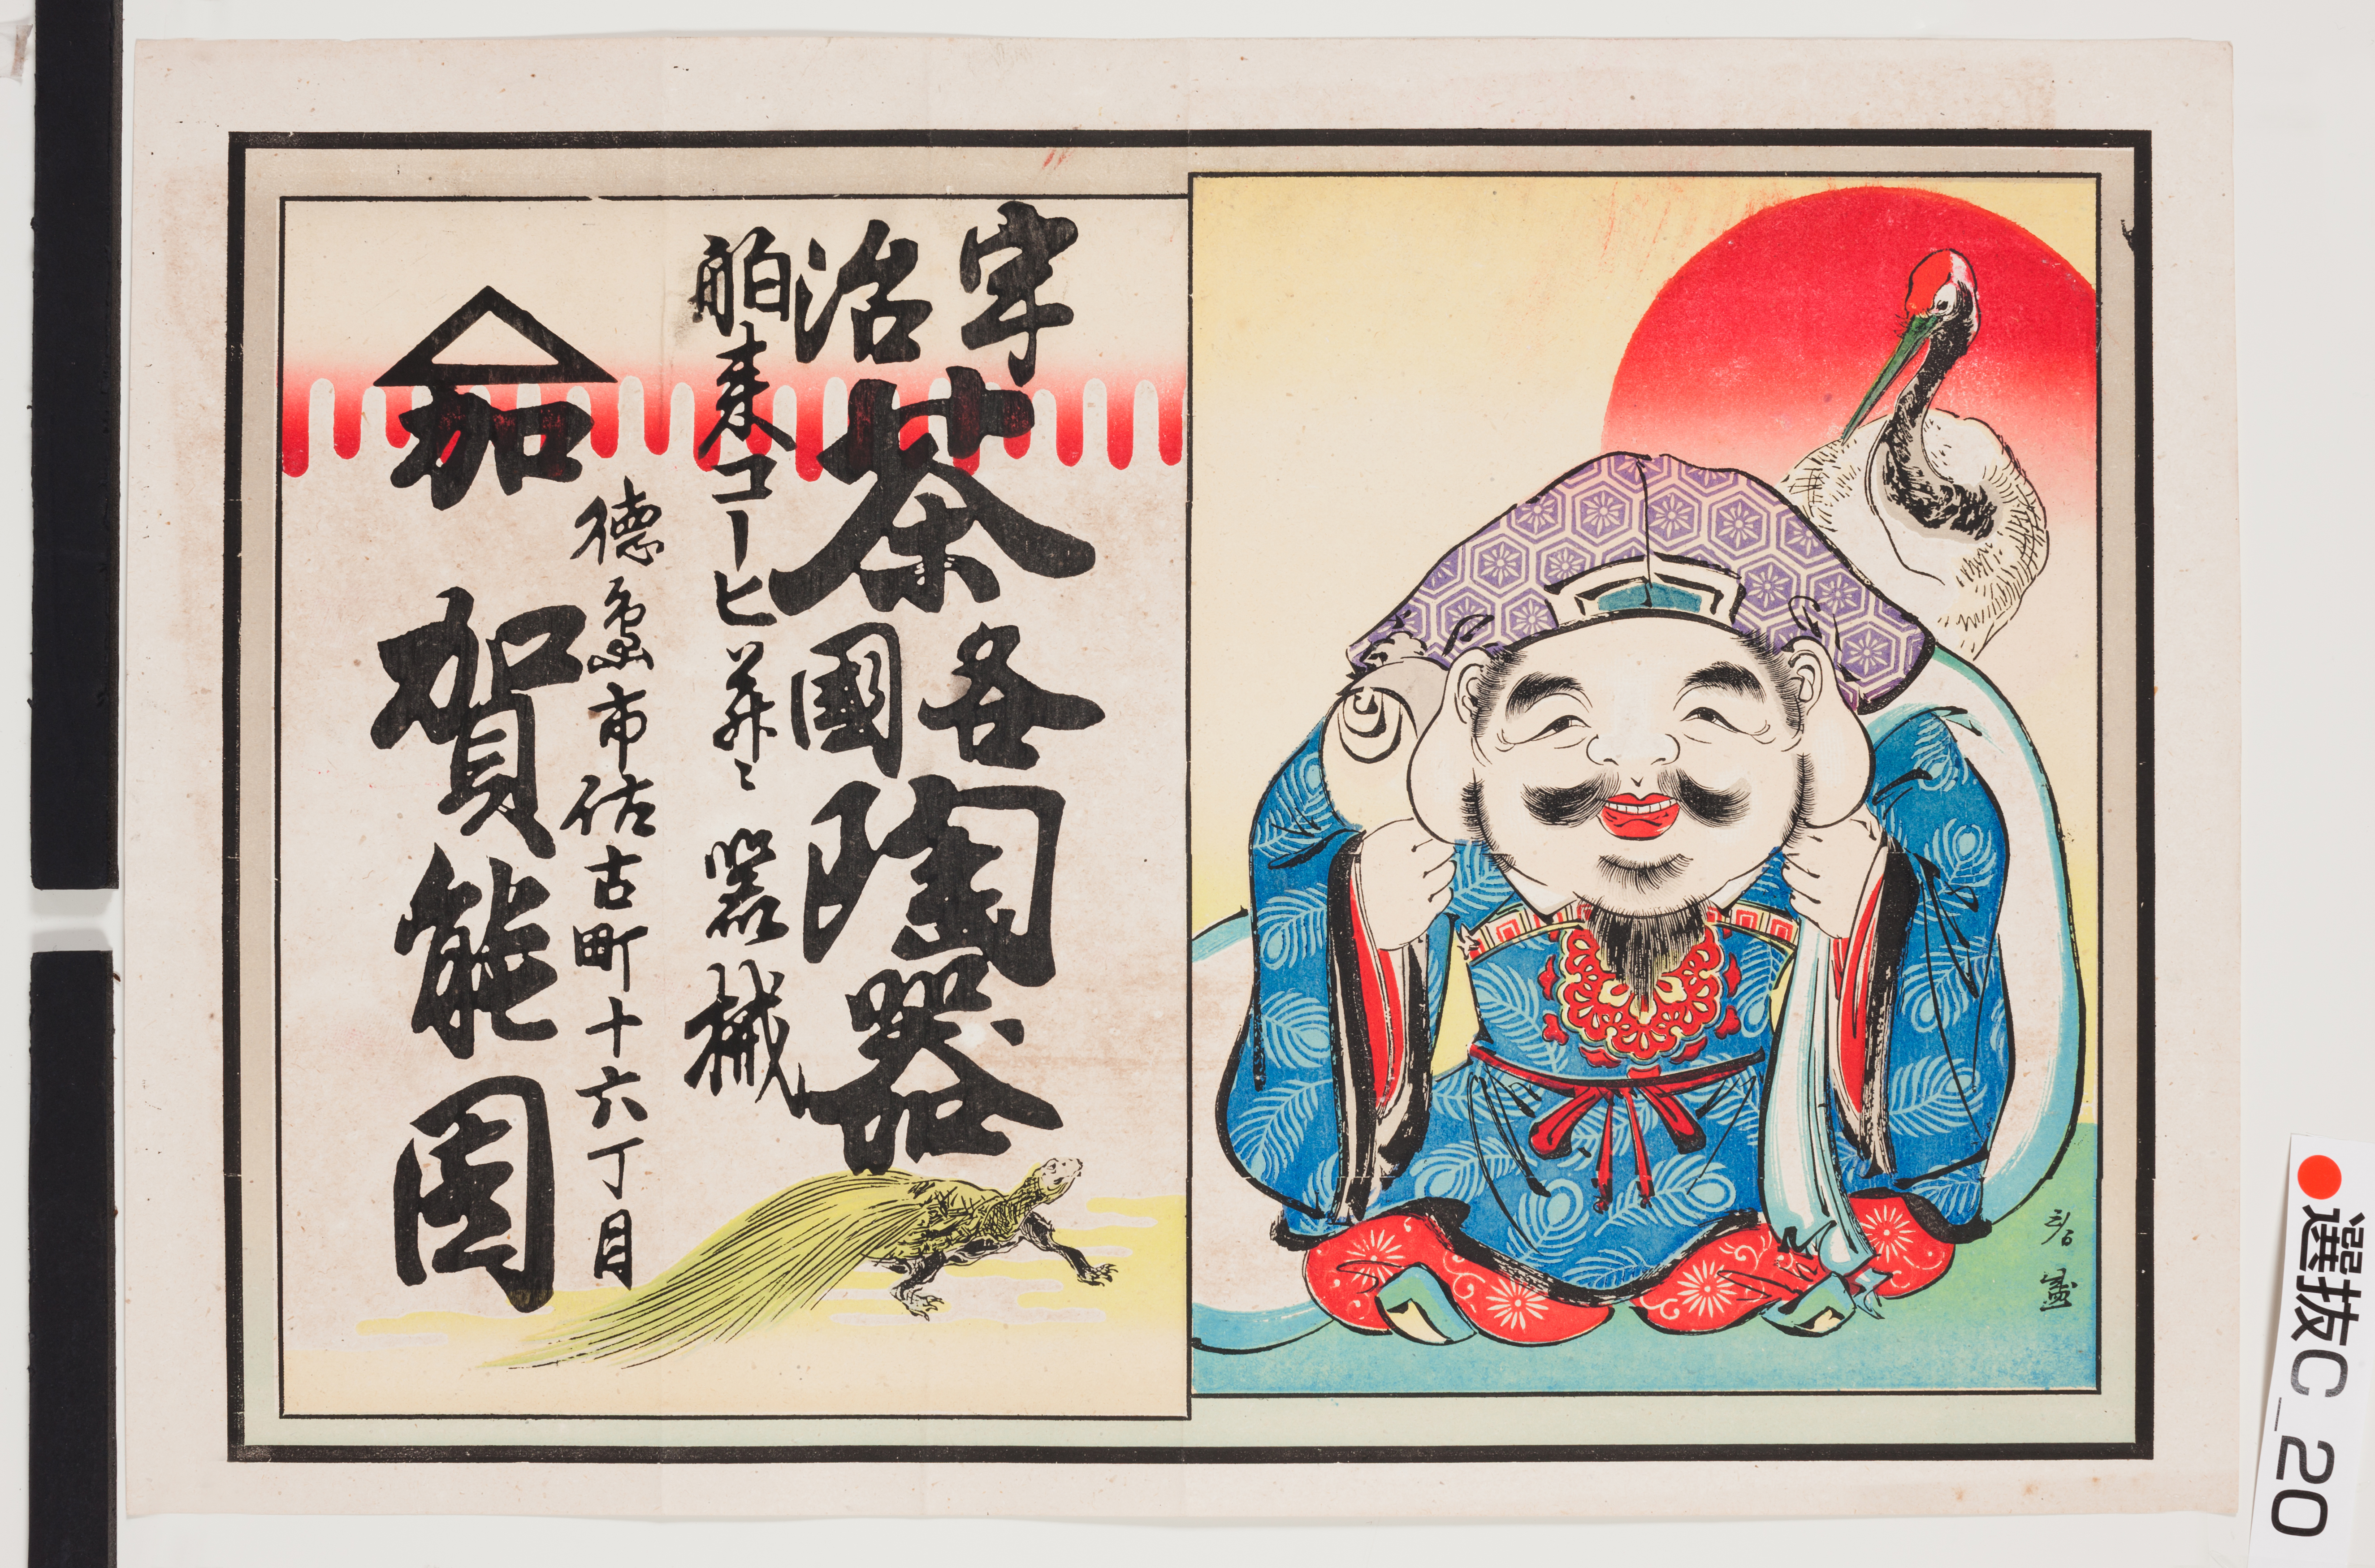 宇治茶各國陶器
舶来コーヒ並ニ器械
徳島市佐古町十六丁目
加
加賀能園
選抜C_20